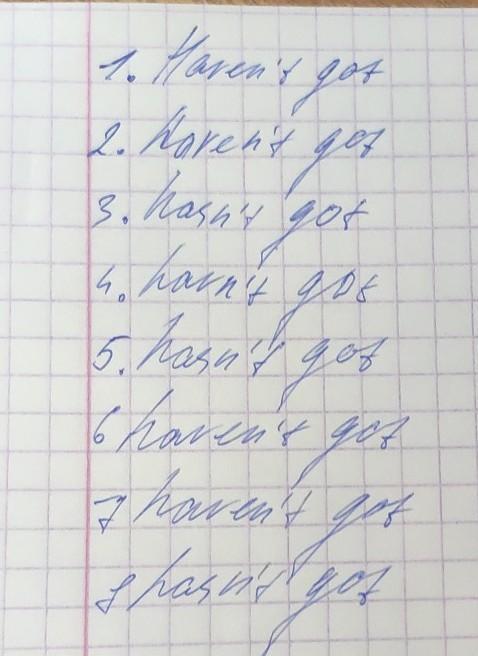 1. Haven't got
2. Haven't got
3. hasn't got
4. havn't got
5. hasn't got
6 haven't got
7 haven't got
8 hasn't got